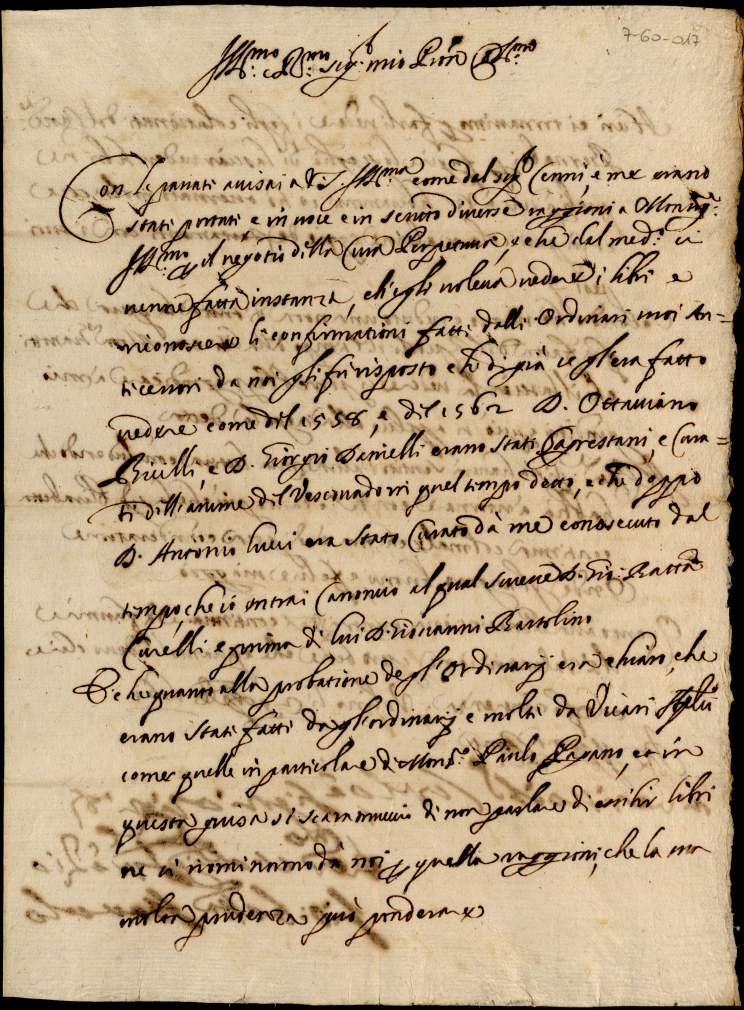 7-60-017
Ill:mo e R:mo sig:r mio P'ron Col:mo
Con le passate avisai a V.S. Ill:ma come dal sig:r Cenni, e me erano
stati portati, e in voce e in scritto diverse raggioni a Monsig:r
Ill:mo p il negotio della Cura Perpetua, e che dal med:o ci
venne fatta instanza, ch'egli voleva vedere i libri e
riconoscere li confirmationi fatti dalli Ordinari suoi An=
ticessori da noi gli fu risposto che di già se gl'era fatto
vedere come del 1558, e del 1562 D. Ottaviano
Ricilli, e D. Giorgio Danielli erano stati Sagrestani, e Cura=
ti dell'anime del Vescovado in quel tempo detto, e che doppo
D. Antonio Lucci era stato Curato da me conosciuto dal
tempo, che io entrai Canonico al qual successe D. Gio: Batta
Carelli e prima di lui D. Giovanni Bartolino
E che quanto alla probatione degl'Ordinarij era chiaro, che
erano stati fatti da gl'ordinarij e molti da Vicari
come quelle in particolare di Mons:r Paulo Pagano, et in
questa guisa si scaramuccio di non parlare di esibir libri
ne si nominorno da noi p quella raggioni, che la sua
molta prudenza può ponderare